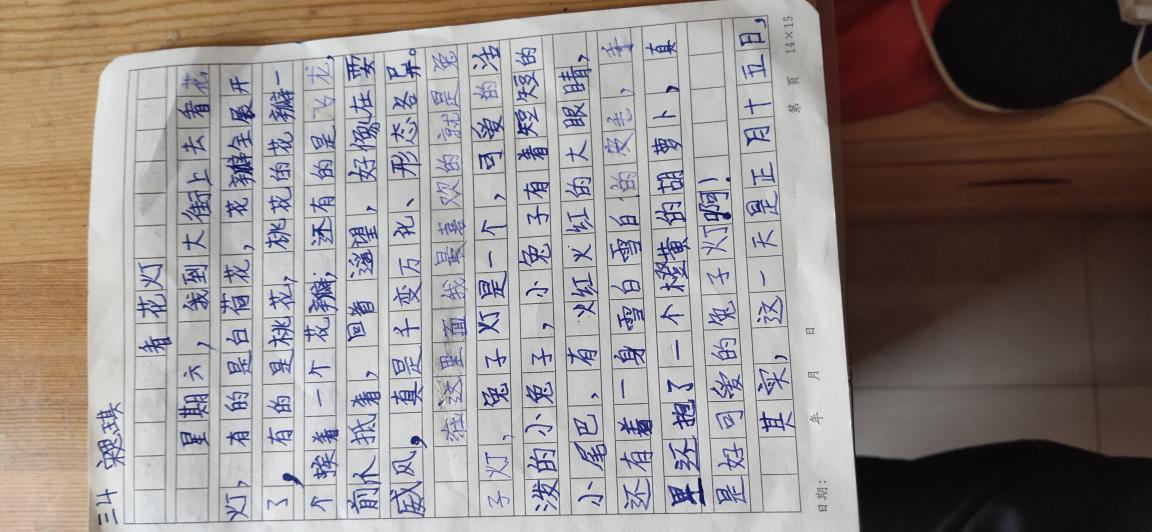 三4 宋思琪
看花灯
星期六，我到大街上去看花
灯，有的是白荷花，花瓣全展开
了，有的是桃花，桃花的花瓣一
个挨着一个花瓣，还有的是飞龙，
前爪抵着，回首遥望，好像在耍
威风，真是千变万化、形态各异。
在这里面我最喜欢的就是兔
子灯，兔子灯是一个，可爱的活
泼的小兔子，小兔子有着短短的
小尾巴、有火红火红的大眼睛，
还有着一身雪白雪白的皮毛，手
里还抱了一个橙黄的胡萝卜，真
是好可爱的兔子灯啊！
其实，这一天是正月十五日，
日期： 年 月 日 第 页 14×15